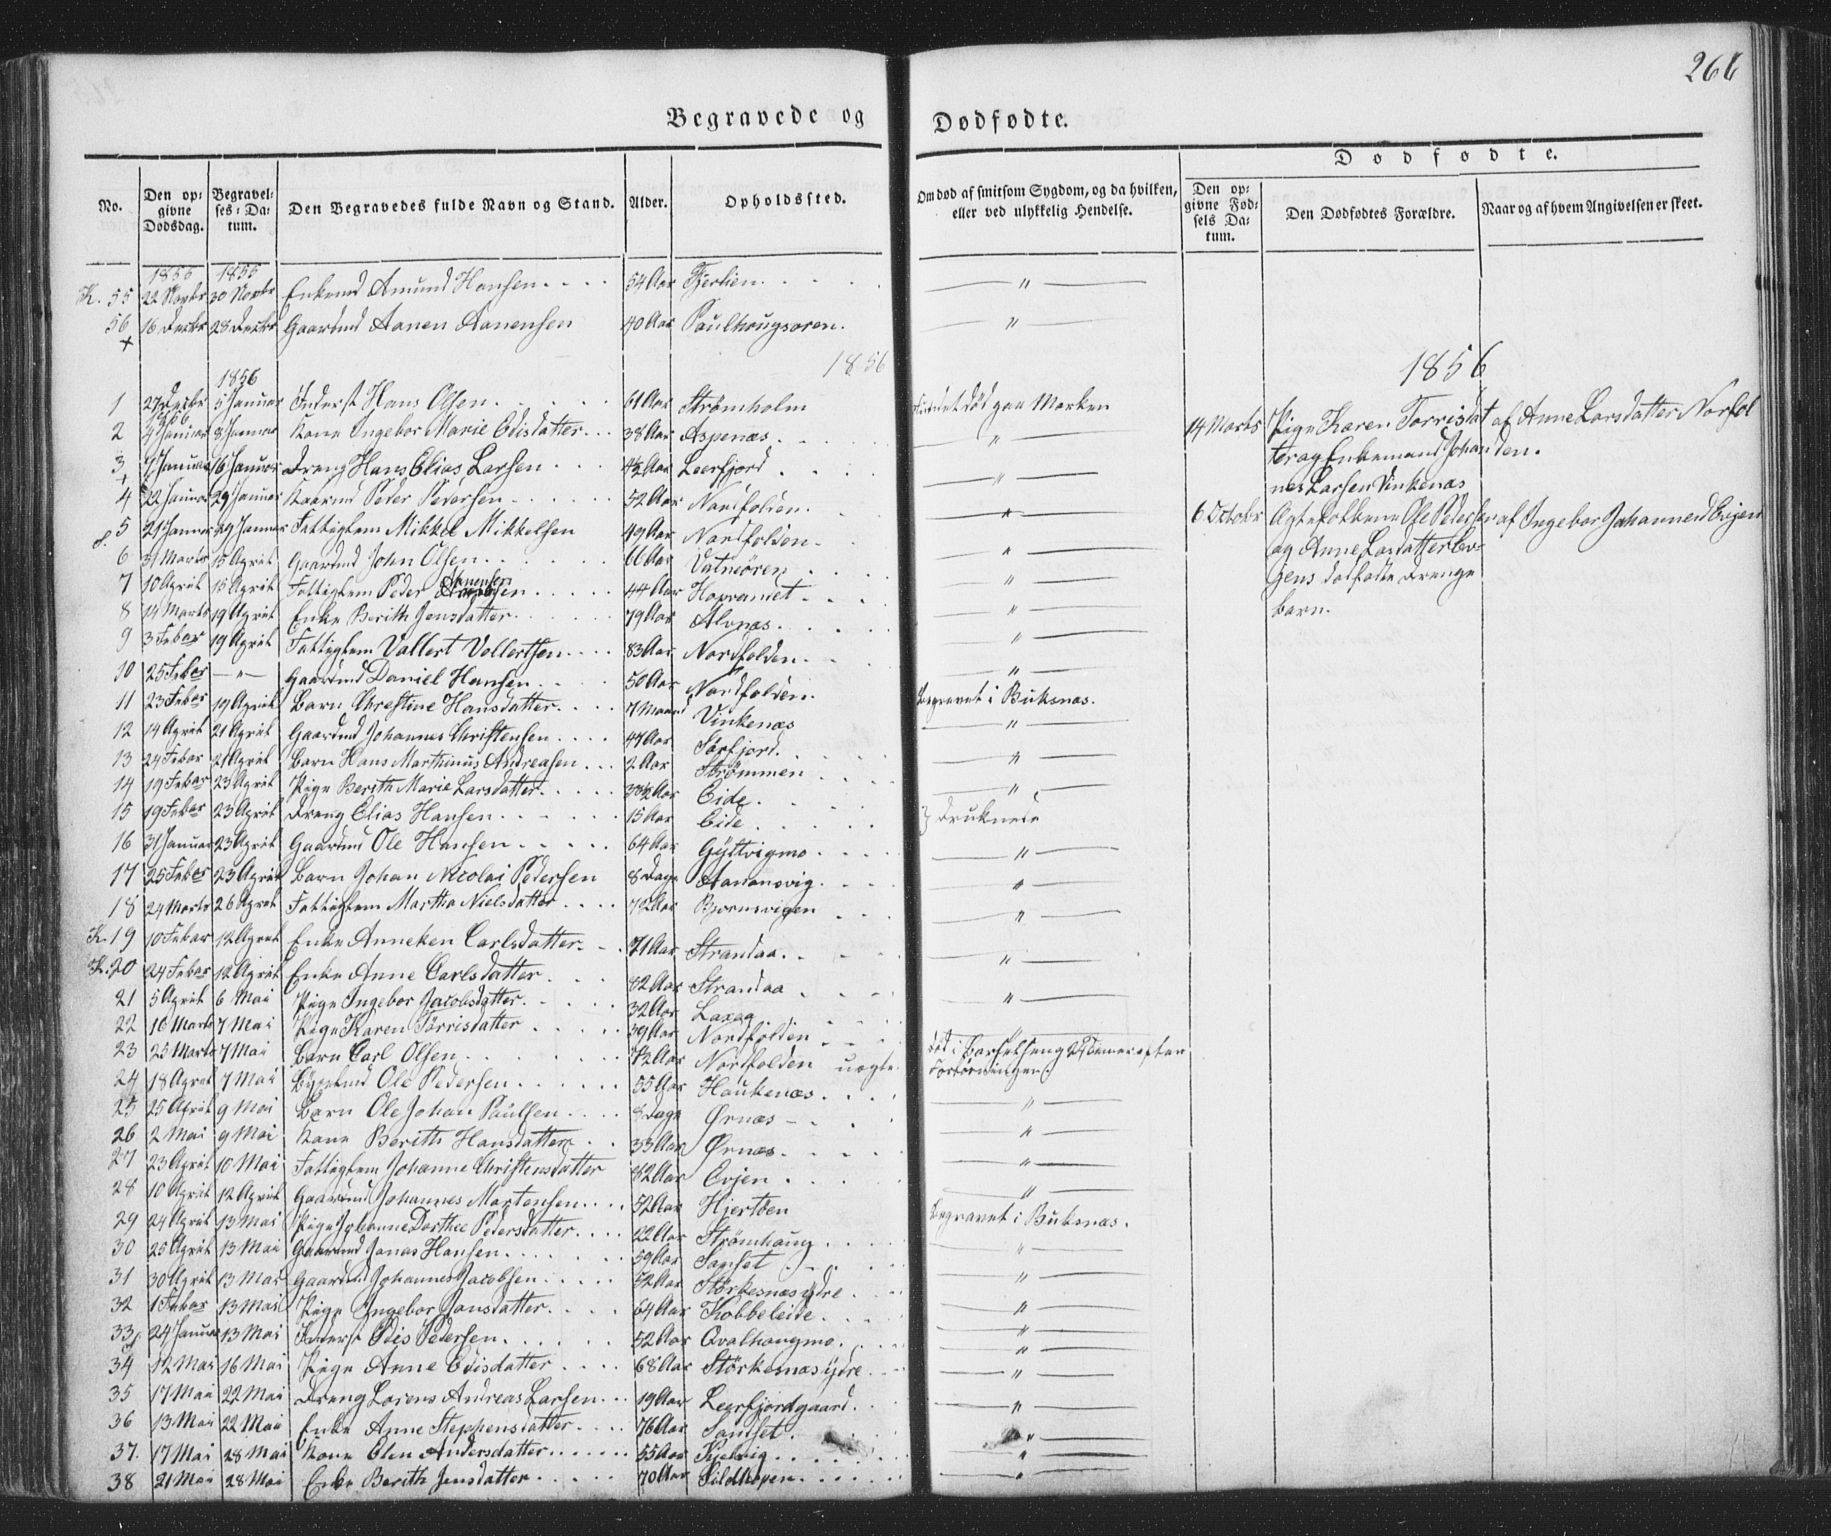 266
Begravede og Dødfødte.
Dødfødte.
No.
Den opgivne Dødsdag.
Begravelses-Datum.
Den Begravedes fulde Navn og Stand.
Alder.
Opholdssted.
Om død af smitsom Sygdom, og da hvilken, eller ved ulykkelig Hendelse.
Den opgivne Fødsels Datum.
Den Dødfødtes Forældre.
Naar og af hvem Angivelsen er skeet.
1855 1855
K. 55 22 Novbr 30 Novbr Enkemd Amund Hansen 54 Aar Fjerlien "
56 16 Decbr 28 Decbr Gaardmd Aanen Aanensen 40 Aar Paulhougsoren. "
1856
1856
1856
1 27 Decbr 5 Januar Inderst Hans Olsen 61 Aar Strømholm fundet død paa Marken
1856
2 4 Januar 8 Januar Kone Ingebor Marie Edisdatter 38 Aar Aspenæs "
3 7 Januar 16 Januar Dreng Hans Elias Larsen 4½ Aar Leerfjord "
4 22 Januar 29 Januar Gaardmd Peder Pedersen 52 Aar Nordfolden "
5 21 Januar 29 Januar Fattiglem Mikkel Mikkelsen 49 Aar Nordfolden "
6 31 Marts 15 April Gaardmd John Olsen 66 Aar Vatneøren "
7 10 April 15 April Fattiglem Peder Aanensen 44 Aar Hopvandet "
8 14 Marts 19 April Enke Berith Jensdatter 79 Aar Alvnæs "
9 3 Febar 19 April Fattiglem Vollert Vollertsen 83 Aar Nordfolden "
10 25 Febar " Gaardmd Daniel Hansen 50 Aar Nordfolden "
11 23 Febar 19 April Barn Christine Hansdatter 7 Maaned Vinkenæs Begravet i Buksnæs.
12 14 April 21 April Gaardmd Johannes Christensen 47 Aar Sørfjord "
13 24 Febar 21 April Barn Hans Marthinus Andreasen 2 Aar Strømmen "
14 19 Febar 23 April Pige Berith Marie Larsdatter 30½ Aar Eide.
15 19 Febar 23 April Dreng Elias Hansen 15 Aar Eide } druknede
16 31 Januar 23 April Gaardmd Ole Hansen 64 Aar Gyltvigmo "
17 25 Febar 23 April Barn Johan Nicolai Pedersen 8 Dage Aanonsvig "
18 24 Marts 26 April Fattiglem Martha Nielsdatter 72 Aar Bjornsvigen "
K. 19 10 Febar 12 April Enke Anneken Carlsdatter 71 Aar Strandaa "
K. 20 24 Febar 12 April Enke Anne Carlsdatter 82 Aar Strandaa "
21 5 April 6 Mai Pige Ingebor Jacobsdatter 32 Aar Laxaa "
22 16 Marts 7 Mai Pige Karen Torrisdatter 39 Aar Nordfolden død i Barselseng 2 Timer efter Forløsningen
23 25 Marts 7 Mai Barn Carl Olsen Nordfolden uægte
24 18 April 7 Mai Ole Pedersen 55 Aar Haukenæs "
25 25 April 9 Mai Barn Ole Johan Paulsen 8 Dage Ørnæs "
26 2 Mai 9 Mai Kone Berith Hansdatter 33 Aar Ørnæs "
27 23 April 10 Mai Fattiglem Johanne Christensdatter 82 Aar Evjen "
28 10 April 12 April Gaardmd Johannes Mortensen 52 Aar Hjertøen Begravet i Buksnæs.
29 24 April 13 Mai Pige Johanne Dorthee Pedersdatter 22 Aar Strømhaug "
30 25 April 13 Mai Gaardmd Jonas Hansen 59 Aar Sanset "
31 30 April 13 Mai Gaardmd Johannes Jacobsen 52 Aar Størkesnæs ydre "
32 1 Febar 13 Mai Pige Ingebor Jonsdatter 64 Aar Kobbeleide "
33 24 Januar 13 Mai Inderst Edis Pedersen 52 Aar Qvalhougmo "
34 12 Mai 16 Mai Pige Anne Edisdatter 68 Aar Størkesnæs ydre "
35 17 Mai 22 Mai Dreng Lorens Andreas Larsen 19 Aar Leerfjordgaard "
36 13 Mai 22 Mai Enke Anne Stephensdatter 76 Aar Sandset "
37. 17 Mai 28 Mai Kone Elen Andersdatter 55 Aar Kjelvig "
38 21 Mai 28 Mai Enke Berith Jensdatter 70 Aar Sildhopen "
14 Marts Pige Karen Torrisdatter og Enkemand Johannes Larsen Vinkenæs
af Anne Larsdatter Norfolden.
6 Octobr Ægtefolkene Ole Pedersen og Anne Larsdatter Evjens dødfødte Drengebarn.
af Ingebor Johannesd Evjen